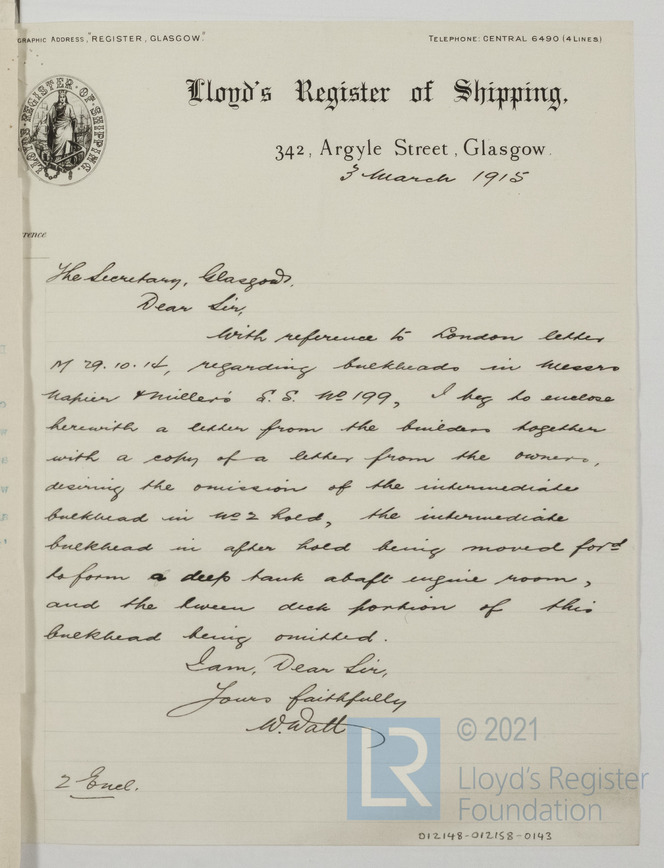 GRAPHIC ADDRESS, "REGISTER, GLASGOW"
TELEPHONE: CENTRAL 6490 (4 LINES)
LLOYD'S REGISTER OF SHIPPING.
Lloyd's Register of Shipping,
342, Argyle Street, Glasgow.
3 March 1915
rence
The Secretary, Glasgow.
Dear Sir,
With reference to London letter
M 29.10.14, regarding bulkheads in Messrs
Napier & Miller's S.S. No 199, I beg to enclose
herewith a letter from the builders together
with a copy of a letter from the owners,
desiring the omission of the intermediate
bulkhead in No 2 hold, the intermediate
bulkhead in after hold being moved ford
to form a deep tank abaft engine room,
and the tween deck portion of this
bulkhead being omitted.
I am, Dear Sir,
Yours faithfully
W. Watt
2 Encl.
LR
© 2021
Lloyd's Register
Foundation
012148-012158-0143